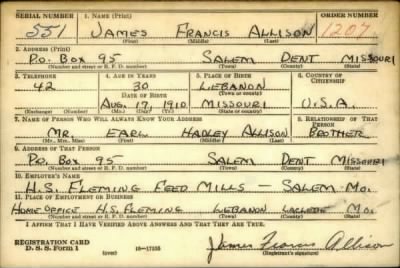 SERIAL NUMBER 1. NAME (Print) ORDER NUMBER
551 JAMES FRANCIS ALLISON 1207
(First) (Middle) (Last)
2. ADDRESS (Print)
P.O. BOX 95 SALEM DENT MISSOURI
(Number and street or R. F. D. number) (Town) (County) (State)
3. TELEPHONE 4. AGE IN YEARS 5. PLACE OF BIRTH 6. COUNTRY OF CITIZENSHIP
42 30 LEBANON
DATE OF BIRTH (Town or county)
AUG. 17, 1910 MISSOURI U.S.A.
(Exchange) (Number) (Mo.) (Day) (Yr.) (State or country)
7. NAME OF PERSON WHO WILL ALWAYS KNOW YOUR ADDRESS 8. RELATIONSHIP OF THAT PERSON
MR. EARL HADLEY ALLISON BROTHER
(Mr., Mrs., Miss) (First) (Middle) (Last)
9. ADDRESS OF THAT PERSON
P.O. BOX 95 SALEM DENT MISSOURI
(Number and street or R. F. D. number) (Town) (County) (State)
10. EMPLOYER'S NAME
H.S. FLEMING FEED MILLS – SALEM MO.
11. PLACE OF EMPLOYMENT OR BUSINESS
HOME OFFICE H.S. FLEMING LEBANON LACLEDE MO.
(Number and street or R. F. D. number) (Town) (County) (State)
I AFFIRM THAT I HAVE VERIFIED ABOVE ANSWERS AND THAT THEY ARE TRUE.
REGISTRATION CARD
D. S. S. Form 1 (over) 16—17105 James Francis Allison
(Registrant's signature)